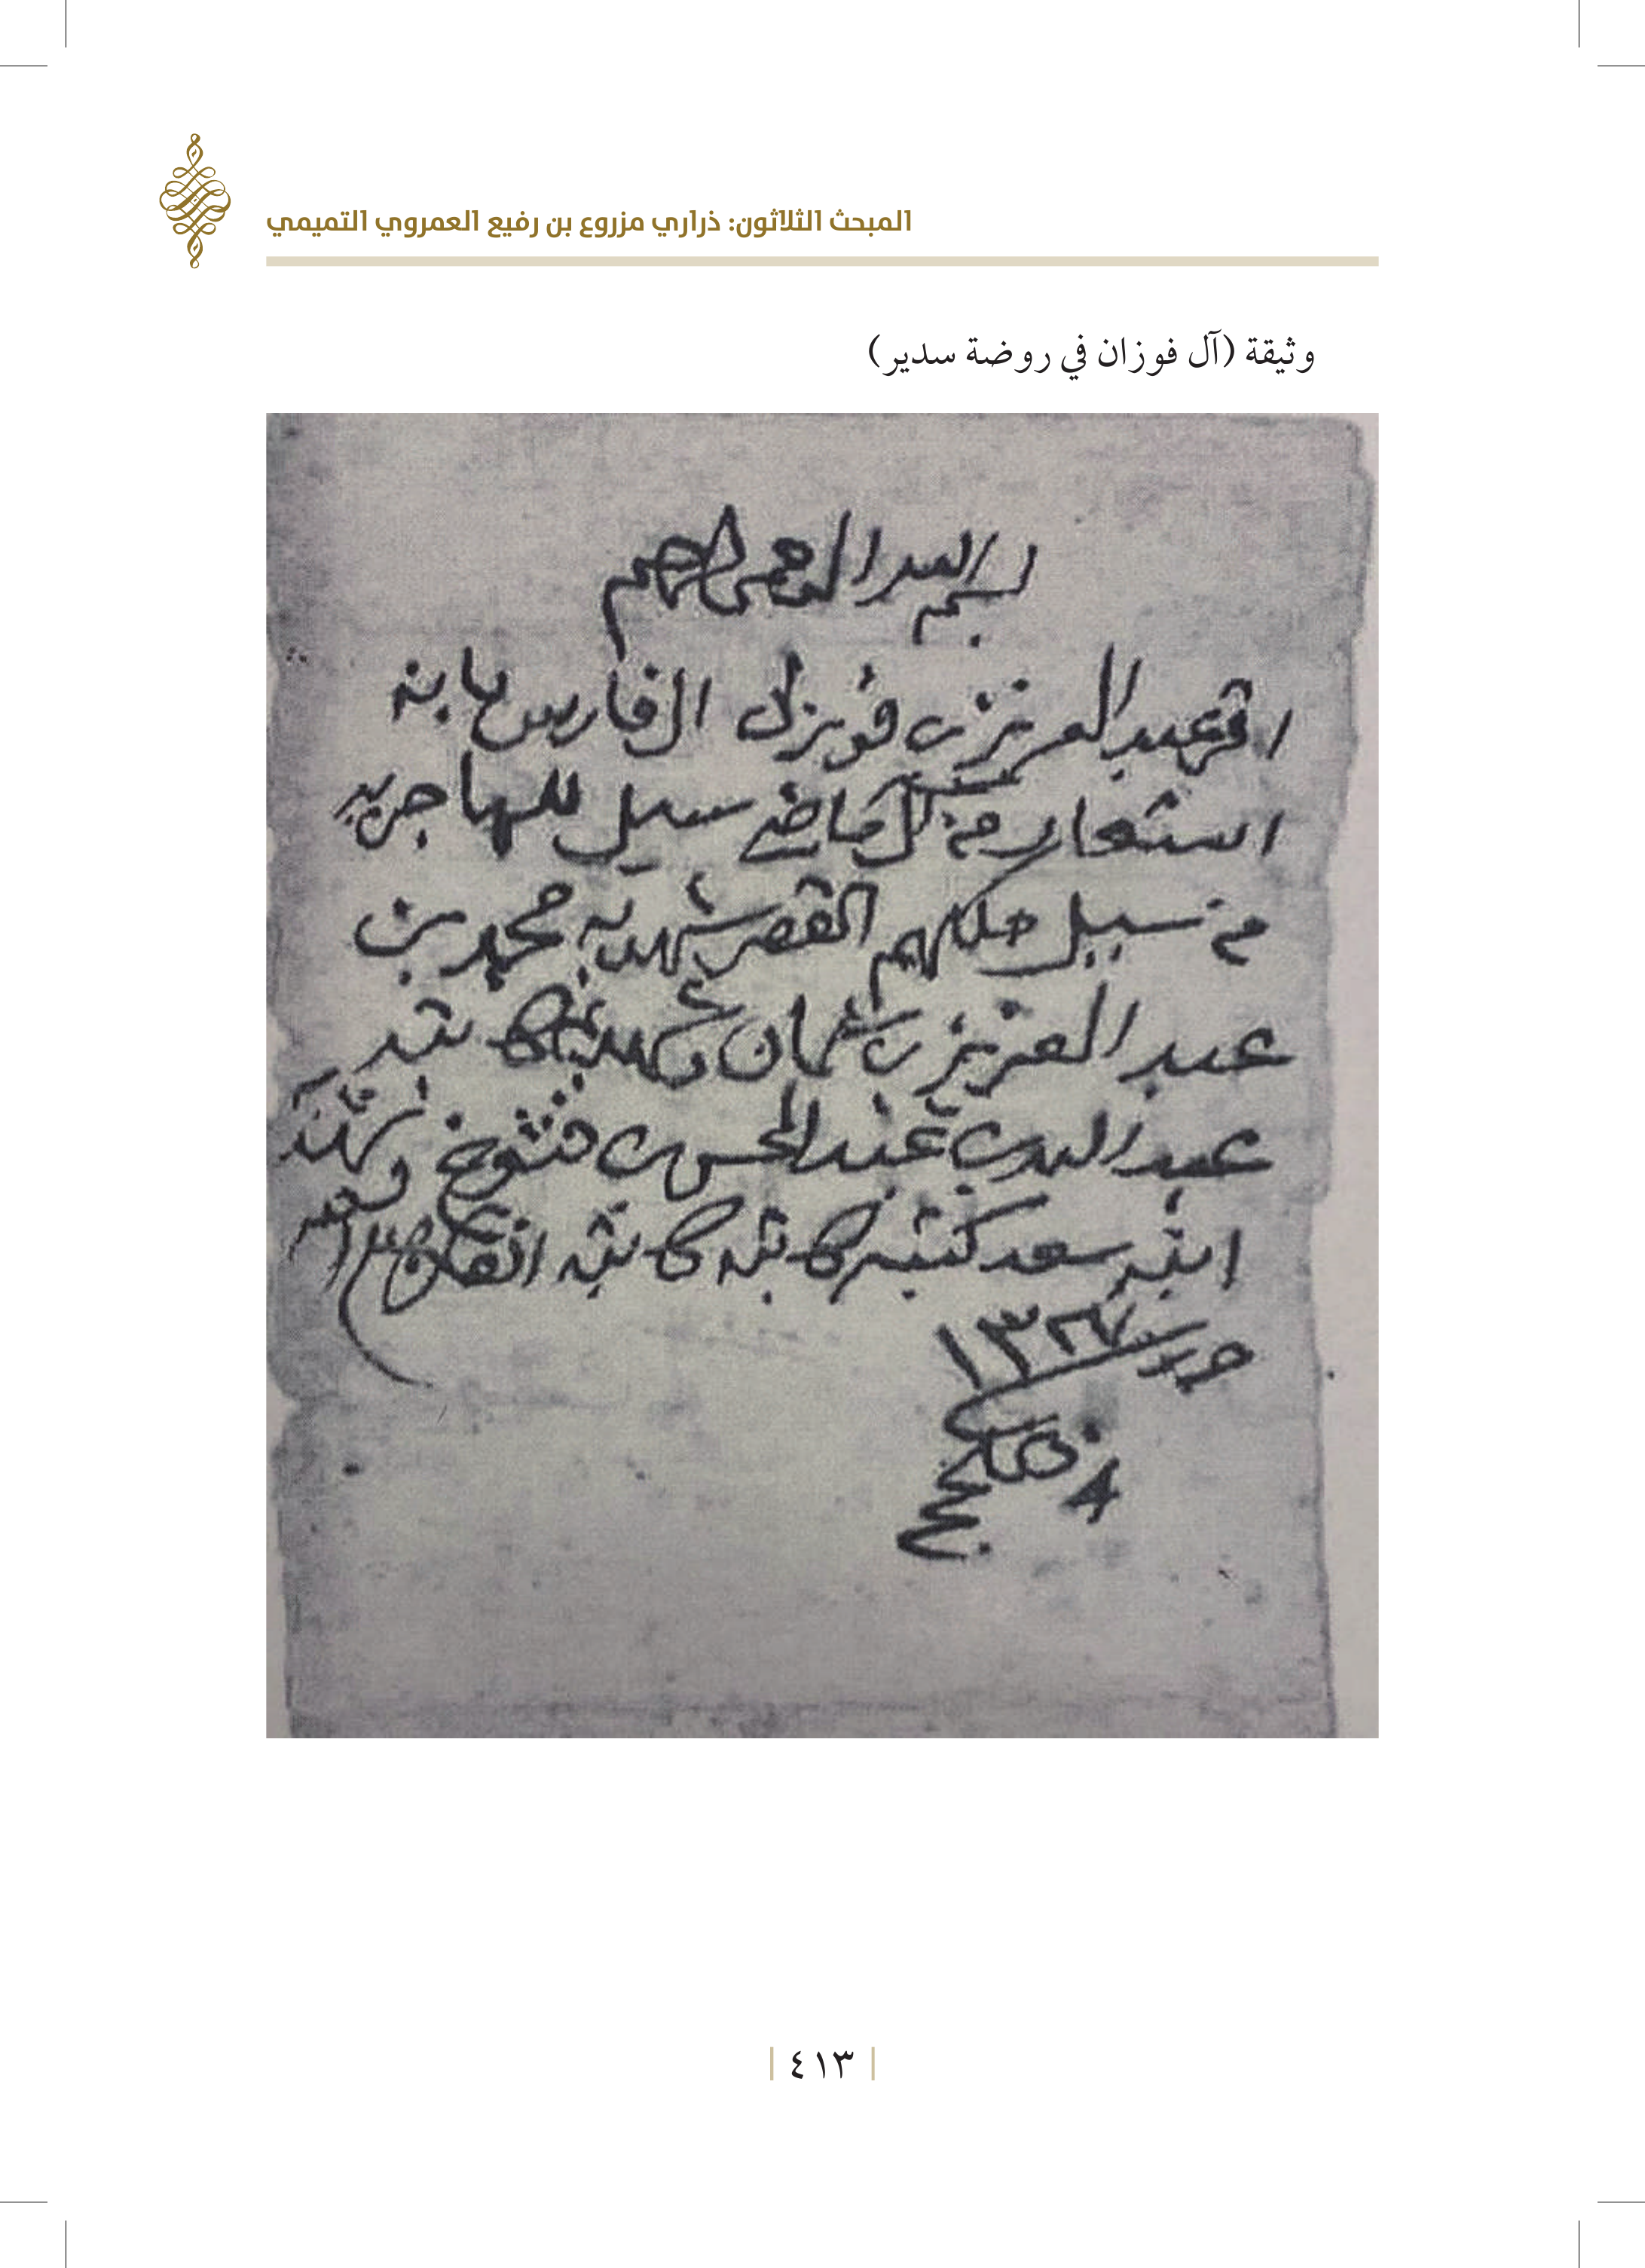 المبحث الثلاثون: ذراري مزروع بن رفيع العمروي التميمي
وثيقة (آل فوزان في روضة سدير)
بسم الله الرحمن الرحيم
اقر عبد العزيز بن فوزان الفارس بانه
استعار من آل ماضي سيل للهاجريه
من سبيل ملكهم القصر شهد به محمد بن
عبد العزيز بن عثمان وشهد به كاتبه
عبد الله بن عبد المحسن بن فنتوخ وشهد
ابنه سعد كتبه كاتبه
حرر ١٣٢٧
٤١٣